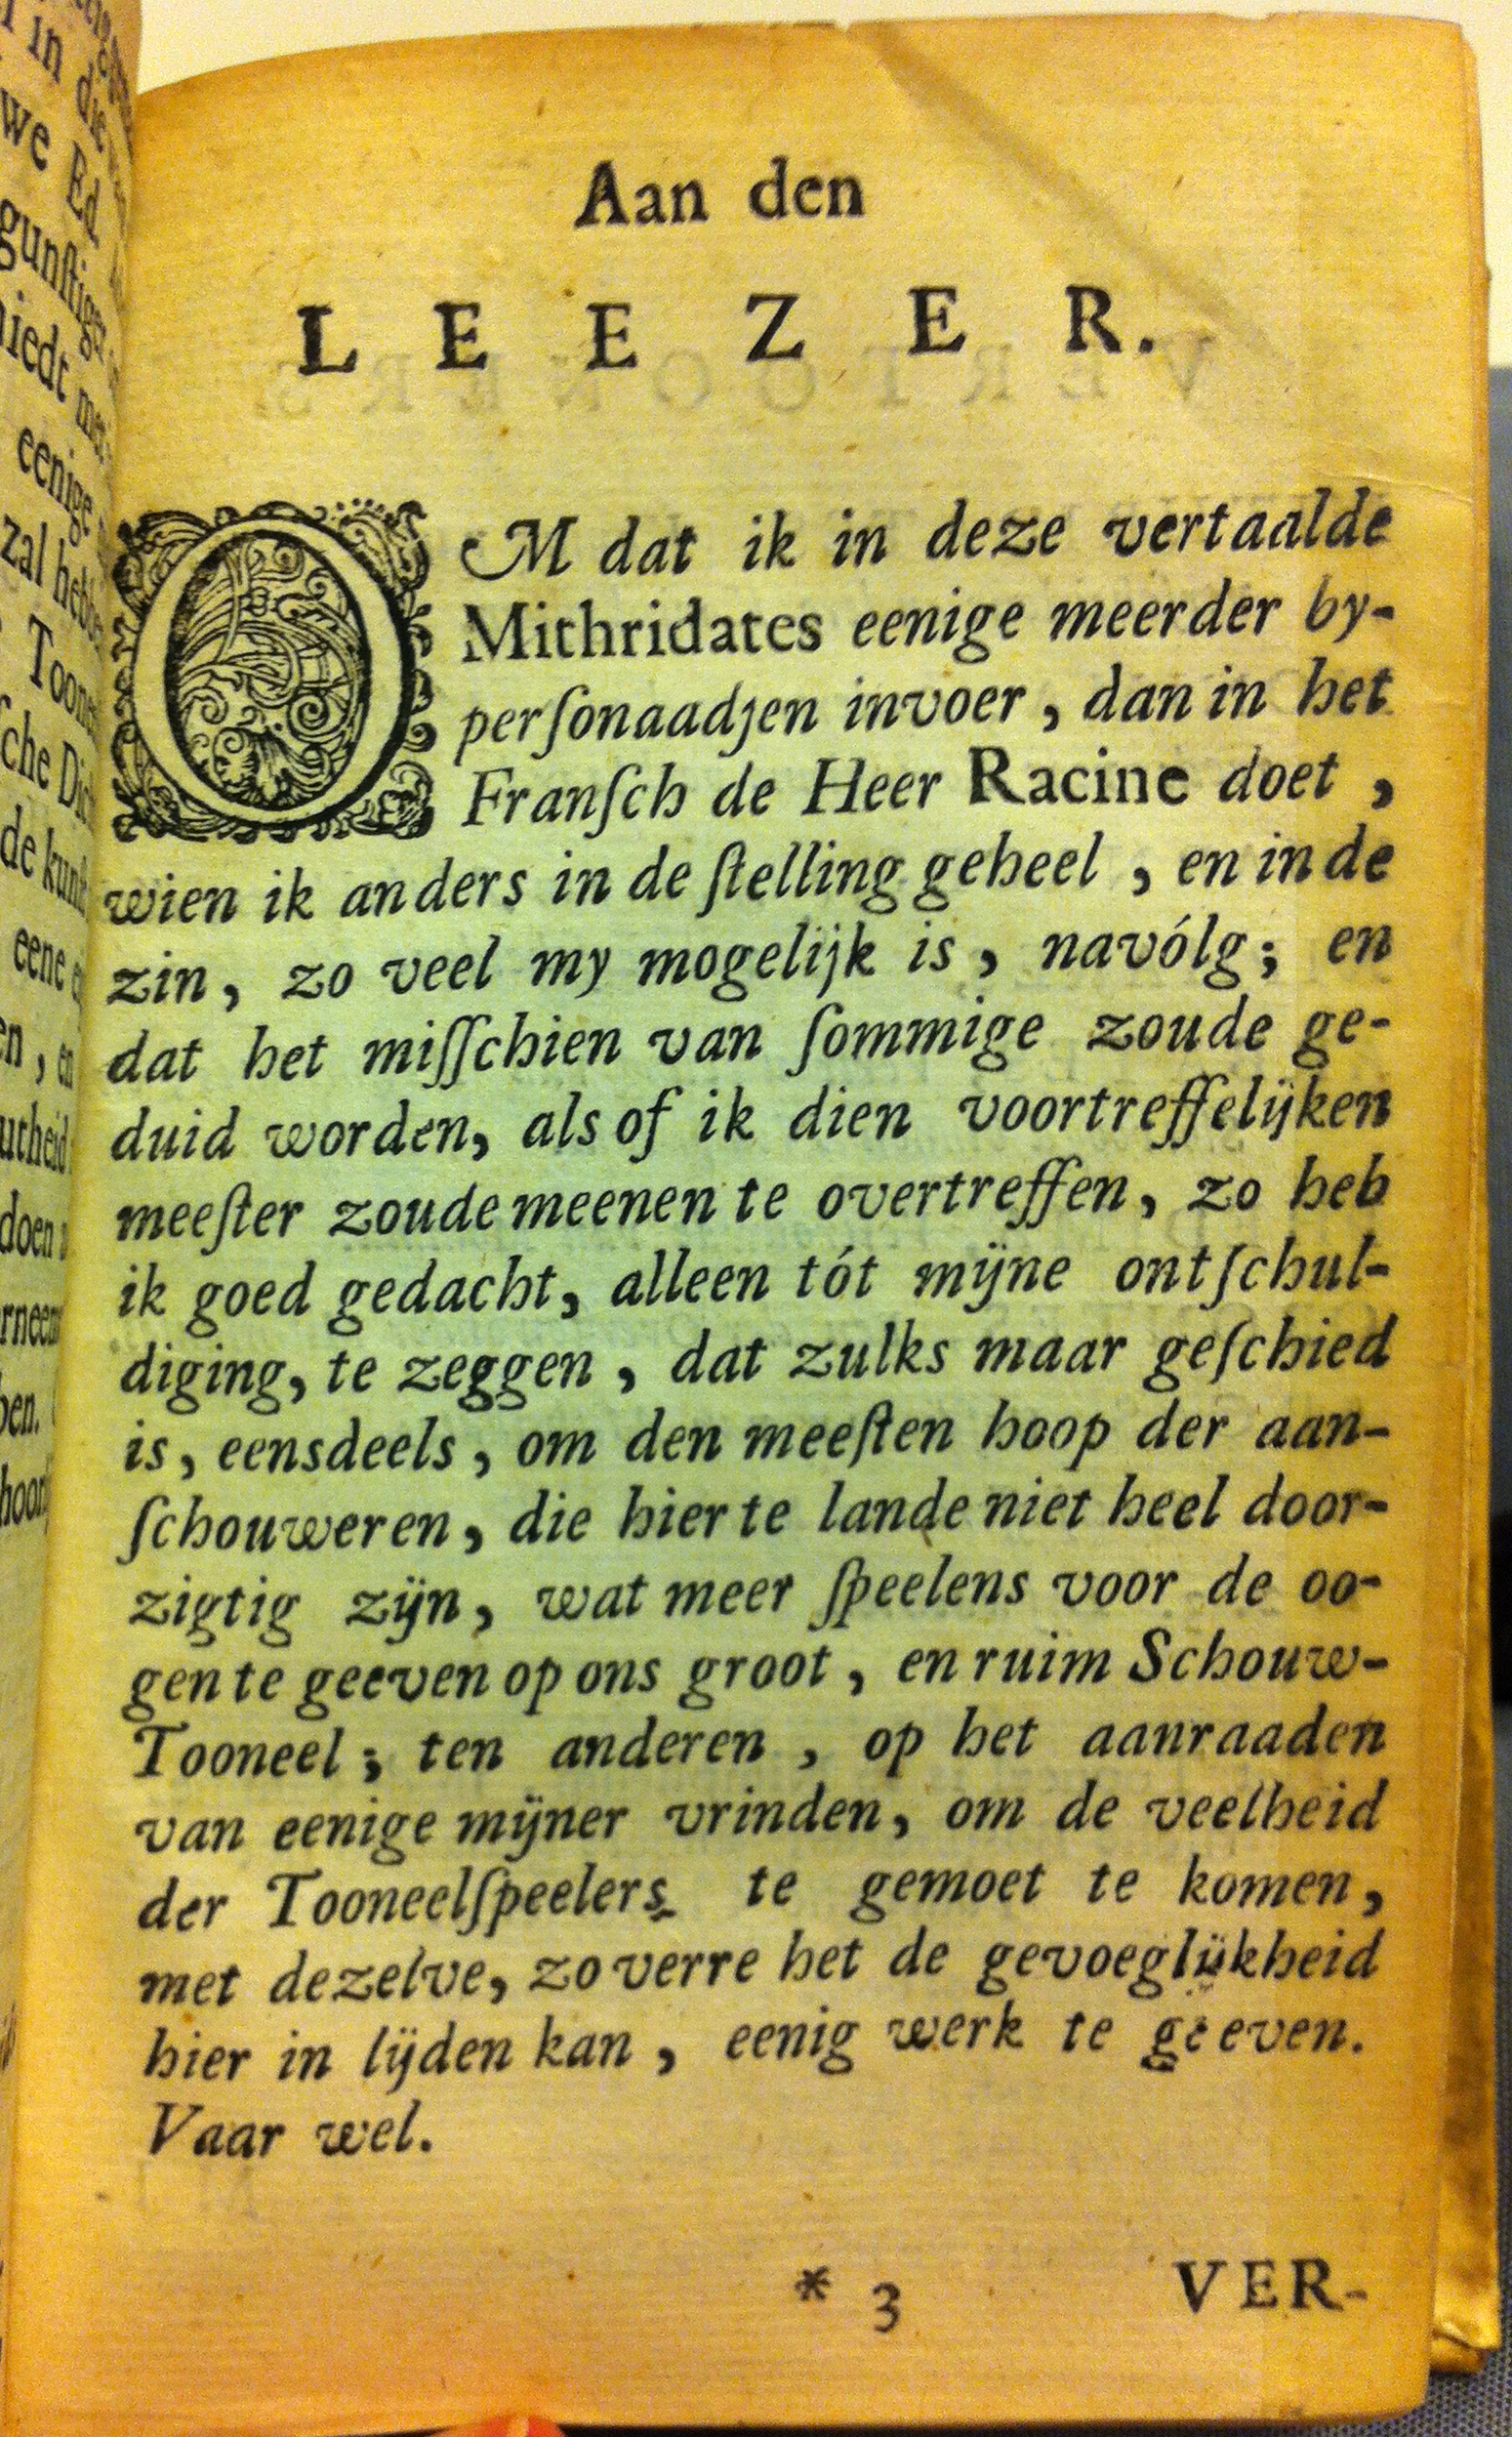 Aan den
LEEZER.
OM dat ik in deze vertaalde
Mithridates eenige meerder by-
perſonaadjen invoer, dan in het
Franſch de Heer Racine doet,
wien ik anders in de ſtelling geheel, en in de
zin, zo veel my mogelijk is, navólg; en
dat het miſſchien van ſommige zoude ge-
duid worden, als of ik dien voortreffelijken
meeſter zoude meenen te overtreffen, zo heb
ik goed gedacht, alleen tót mijne ontſchul-
diging, te zeggen, dat zulks maar geſchied
is, eensdeels, om den meeſten hoop der aan-
ſchouweren, die hier te lande niet heel door-
zigtig zijn, wat meer ſpeelens voor de oo-
gen te geeven op ons groot, en ruim Schouw-
Tooneel; ten anderen, op het aanraaden
van eenige mijner vrinden, om de veelheid
der Tooneelſpeelers te gemoet te komen,
met dezelve, zo verre het de gevoeglijkheid
hier in lijden kan, eenig werk te geeven.
Vaar wel.
* 3 VER-